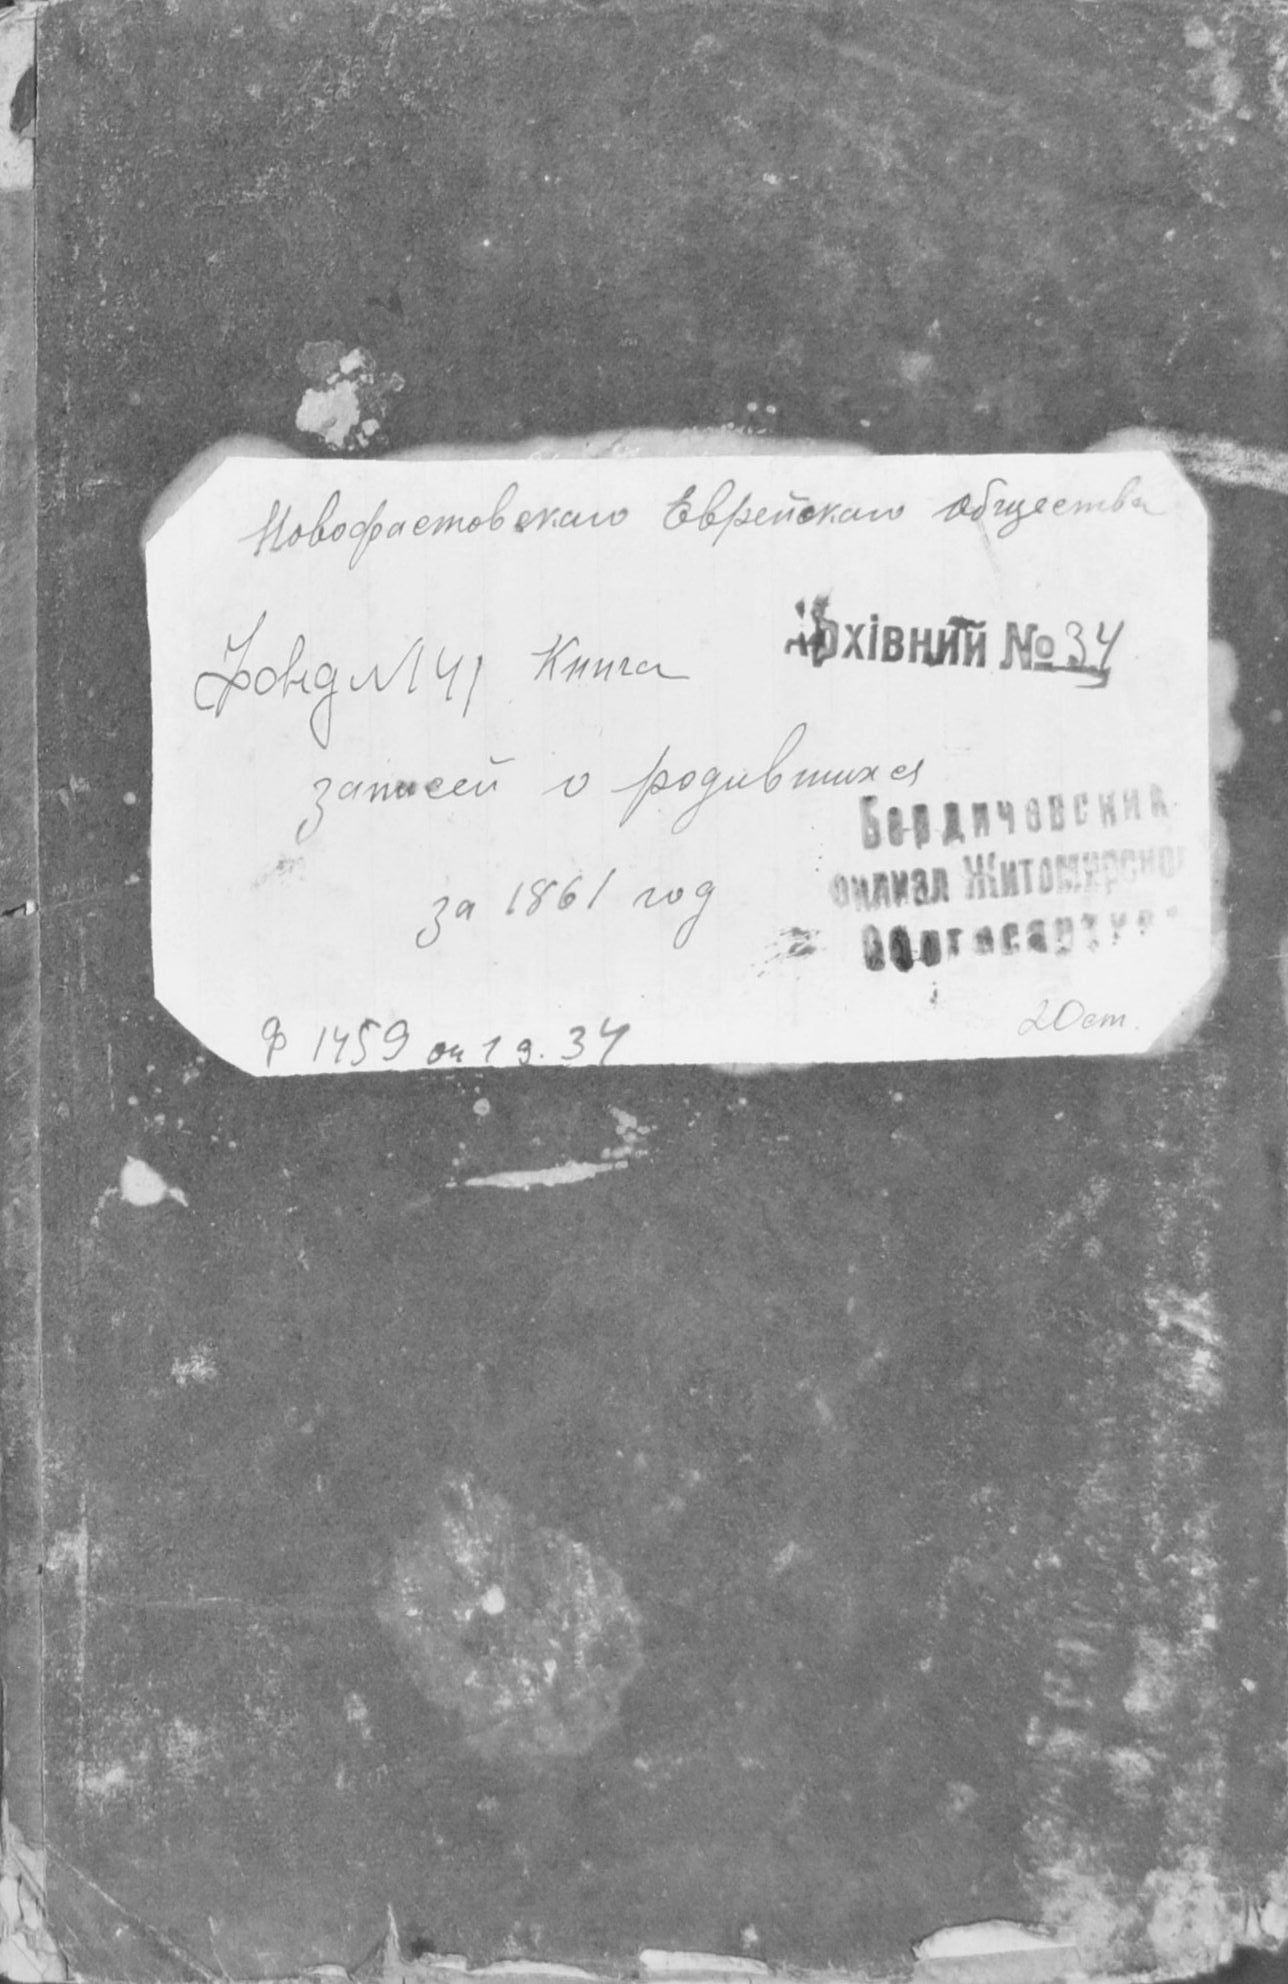 Новофастовскаго Еврейскаго общества
Фонд №141 Книга
Архівний № 34
записей о родившихся
за 1861 год
Бердичевский
филиал Житомирского
Облгосархива
Ф 1459 оп 1 д. 34
20 ст.